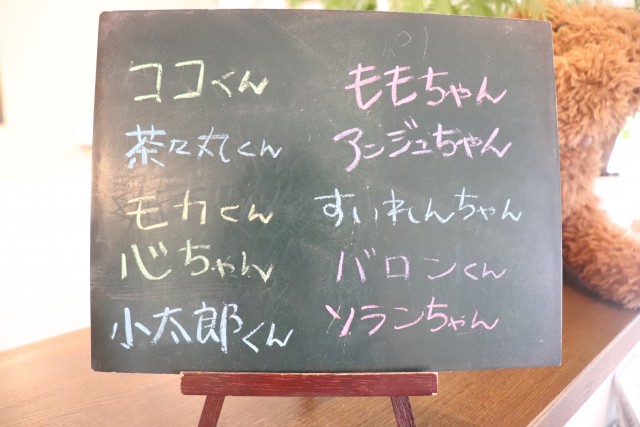 ココくん
茶々丸くん
モカくん
心ちゃん
小太郎くん
ももちゃん
アンジュちゃん
すいれんちゃん
バロンくん
ソランちゃん